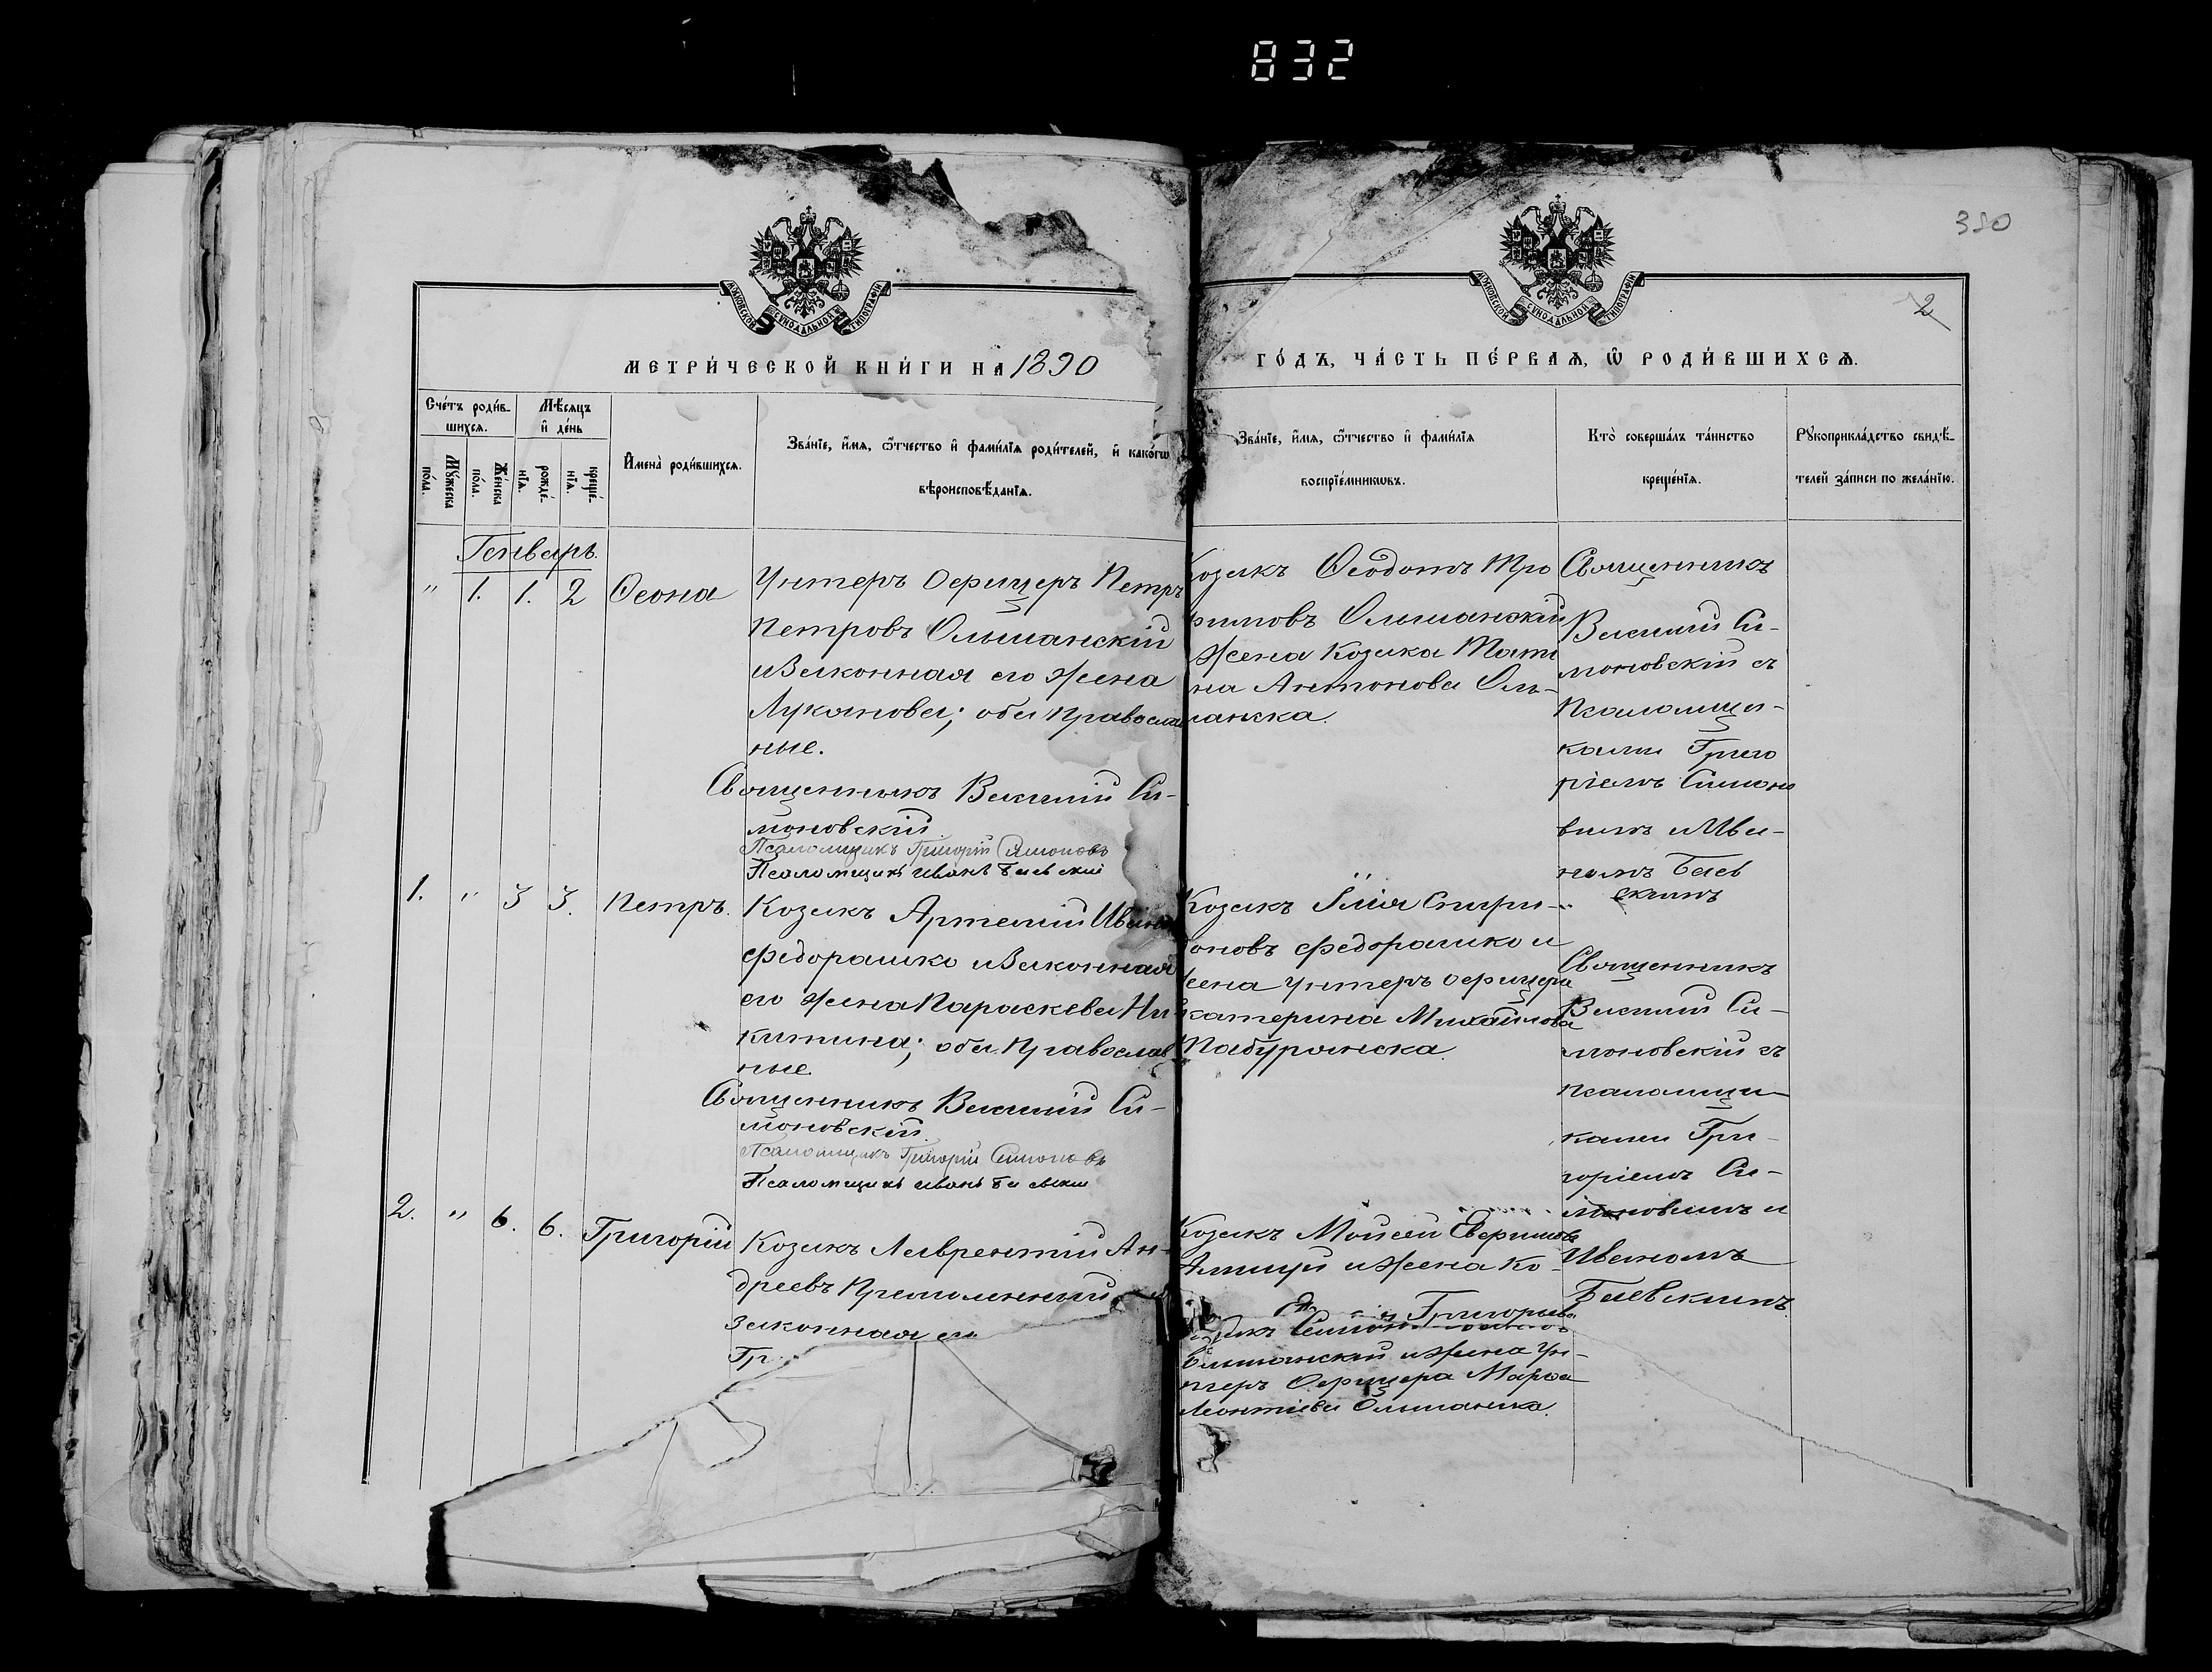 832
380
2
МОСКОВСКОЙ СУНОДАЛЬНОЙ ТИПОГРАФІИ
МОСКОВСКОЙ СУНОДАЛЬНОЙ ТИПОГРАФІИ
МЕТРИ́ЧЕСКОЙ КНИ́ГИ НА 1890
ГО́ДЪ, ЧА́СТЬ ПЕ́РВАѦ, Ѡ҆ РОДИ́ВШИХСѦ.
Сче́тъ роди́в-
шихсѧ.
Мѣ́сѧцъ
и҆ де́нь
Мꙋ́жеска
по́ла.
Же́нска
по́ла.
рожде́-
нїѧ.
креще́-
нїѧ.
И҆мена̀ роди́вшихсѧ.
Зва́нїе, и҆́мѧ, ѻ҆́тчество и҆ фами́лїѧ роди́телей, и҆ како́гѡ
вѣроисповѣ́данїѧ.
Зва́нїе, и҆́мѧ, ѻ҆́тчество и҆ фами́лїѧ
воспрїе́мникѡвъ.
Кто̀ соверша́лъ та́инство
креще́нїѧ.
Рꙋкоприкла́дство свидѣ́-
телей за́писи по жела́нїю.
Генварь.
" 1. 1. 2 Ѳеона
Унтеръ Офицеръ Петръ
Петровъ Ольшанскій
и Законная его жена
Лукянова; оба Православ
ные.
Священникъ Василій Си-
моновскій
Псаломщикъ Григорій Симоновъ
Псаломщикъ Иванъ Баевскій
Козакъ Ѳеодотъ Тро
фимовъ Ольшанскій
Жена Козака Тати
на Антонова Оль-
шанска.
Священникъ
Василій Си-
моновскій съ
Псаломщи-
ками Григо
ріемъ Симоно
вымъ и Ива-
номъ Баев
скимъ
1. " 3 3. Петръ.
Козакъ Артемій Ивано
Федорашко и Законная
его жена Параскева Ни
китина; оба Православ
ные.
Священникъ Василій Си-
моновскій
Псаломщикъ Григорій Симоновъ
Псаломщикъ Иванъ Баевскій
Козакъ Илія Спири-
доновъ Федорашко и
жена унтеръ офицера
катерина Михайлова
Священникъ
Василій Си-
моновскій съ
псаломщи-
ками Гри-
горіемъ Си-
моновымъ и
Иваномъ
Баевскимъ
2. " 6. 6. Григорій
Козакъ Лаврентій Ан-
дреевъ
Законная его
Гр
Козакъ Мойсей
и жена Ко-
Григорьева
Семіон
Ольшанскій и жена Ун-
теръ Офицера Марѳа
Леонтіева Ольшанска.